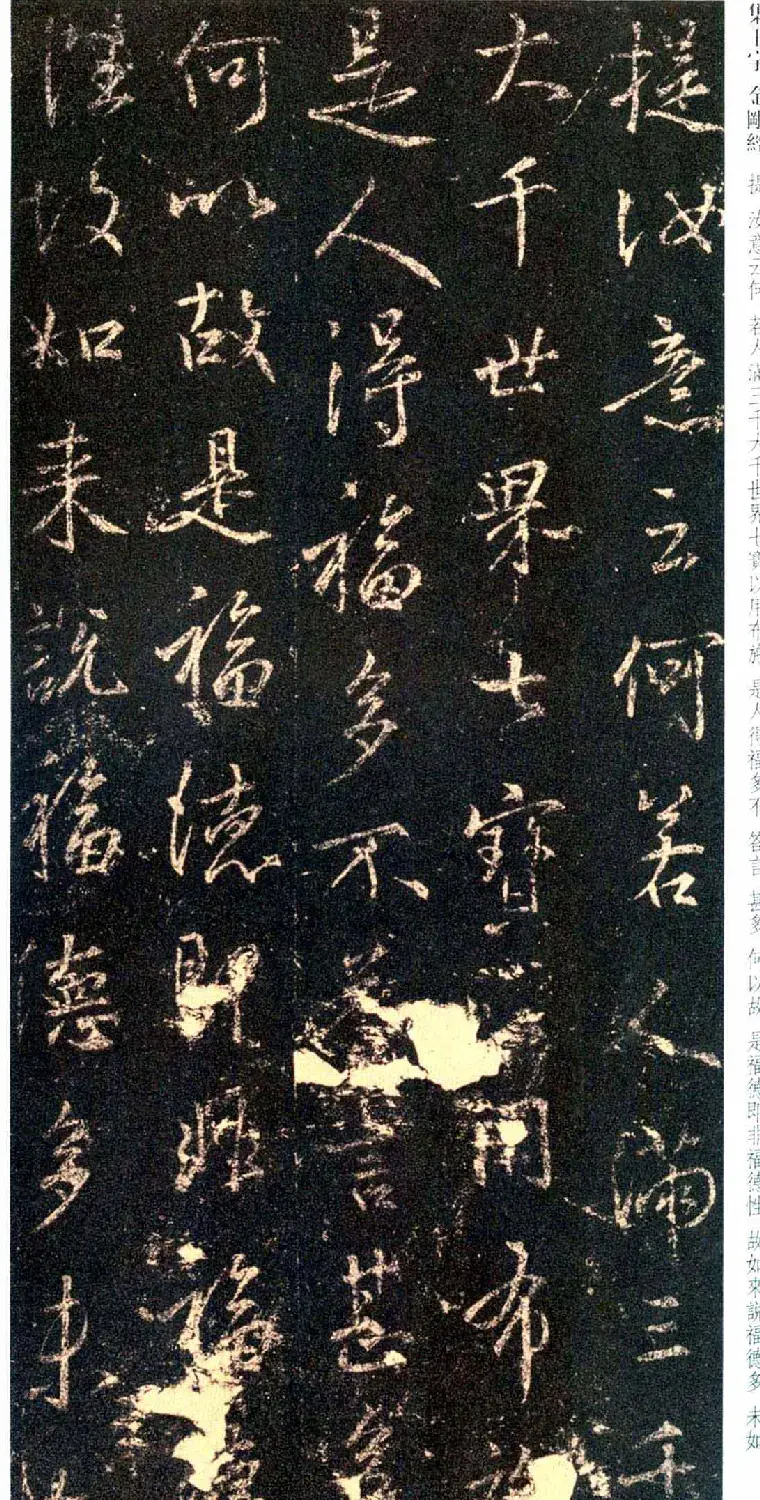 集王字 金剛經 提 汝意云何 若人滿三千大千世界七寶以用布施 是人得福多不 答言 甚多 何以故 是福德即非福德性 故如來說福德多 未如
提汝意云何若人滿三千
大千世界七寶以用布施
是人得福多不答言甚多
何以故是福德即非福德
性故如来說福德多未如